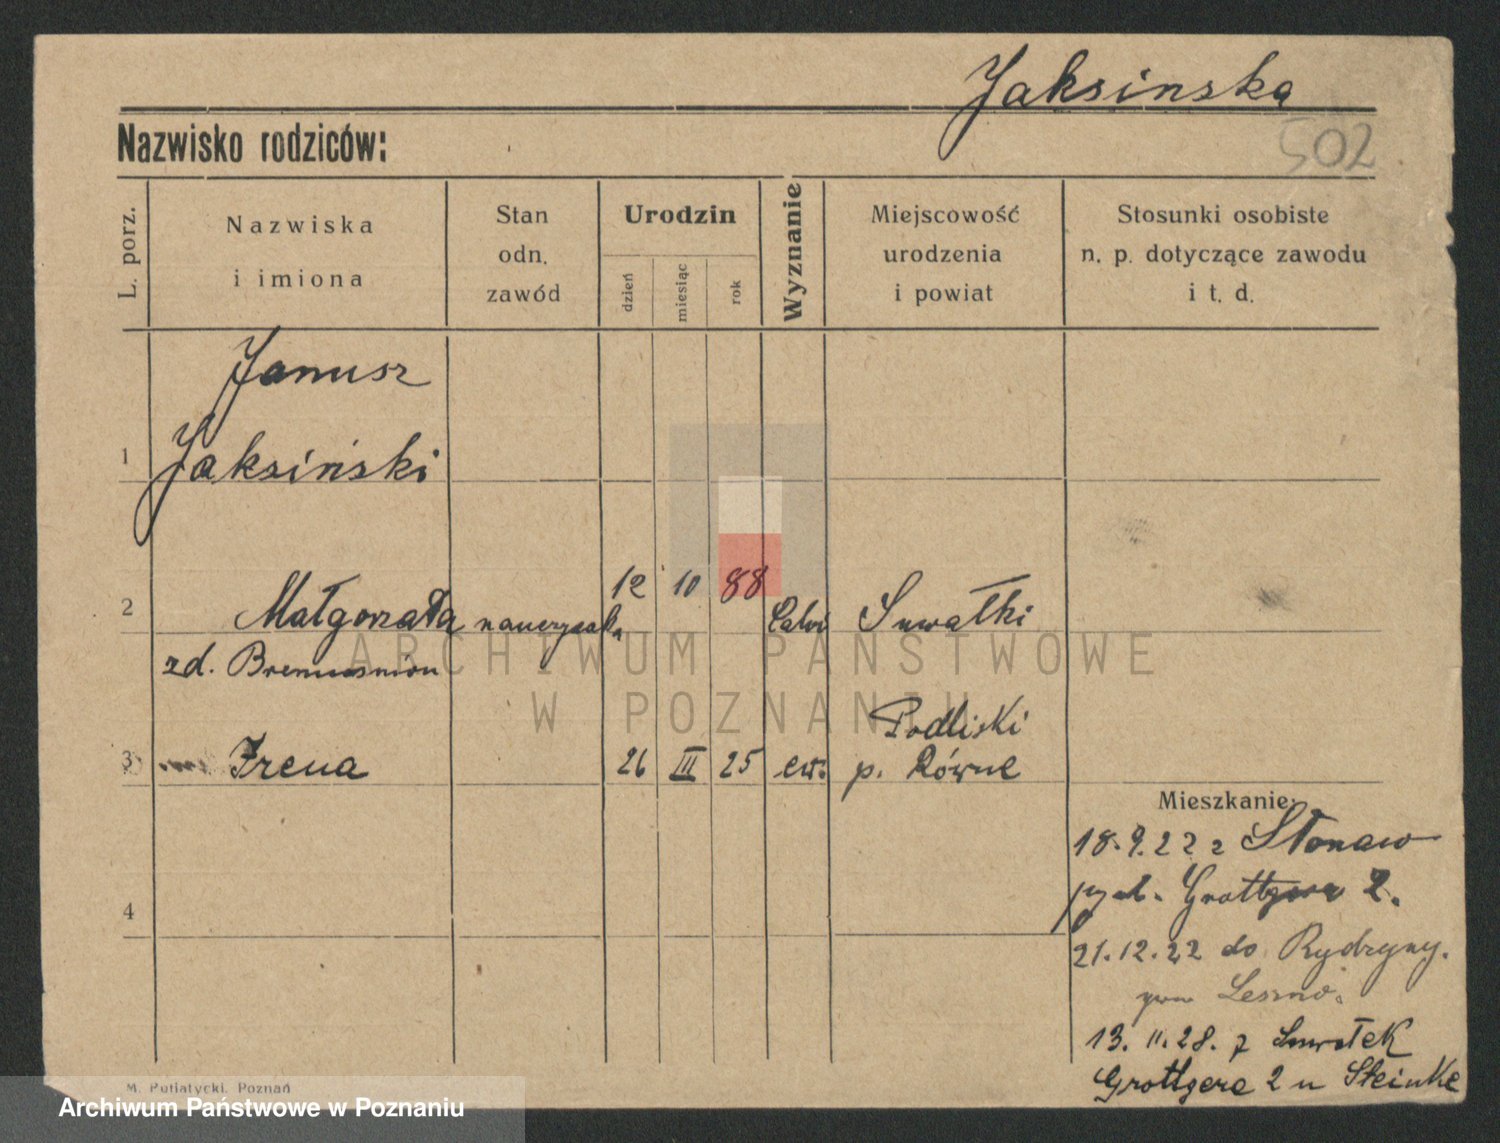 Jaksinska
Nazwisko rodziców:
502
L. porz.
Nazwiska
i imiona
Stan
odn.
zawód
Urodzin
dzień
miesiąc
rok
Wyznanie
Miejscowość
urodzenia
i powiat
Stosunki osobiste
n. p. dotyczące zawodu
i t. d.
Janusz
1 Jaksiński
2 Małgorzata nauczycielka 12 10 88 Calvi Suwałki
zd.
3 Irena 26 III 25 ew. Podliski
p. Równe
Mieszkanie:
4
18.9.22 z Słonaw
Grottgera 2.
21.12.22 do Rydzyny.
Leszno.
13. 11. 28. z Suwałek
Grottgera 2 u Steinke
M. Putiatycki, Poznań
ARCHIWUM PAŃSTWOWE
W POZNANIU
Archiwum Państwowe w Poznaniu